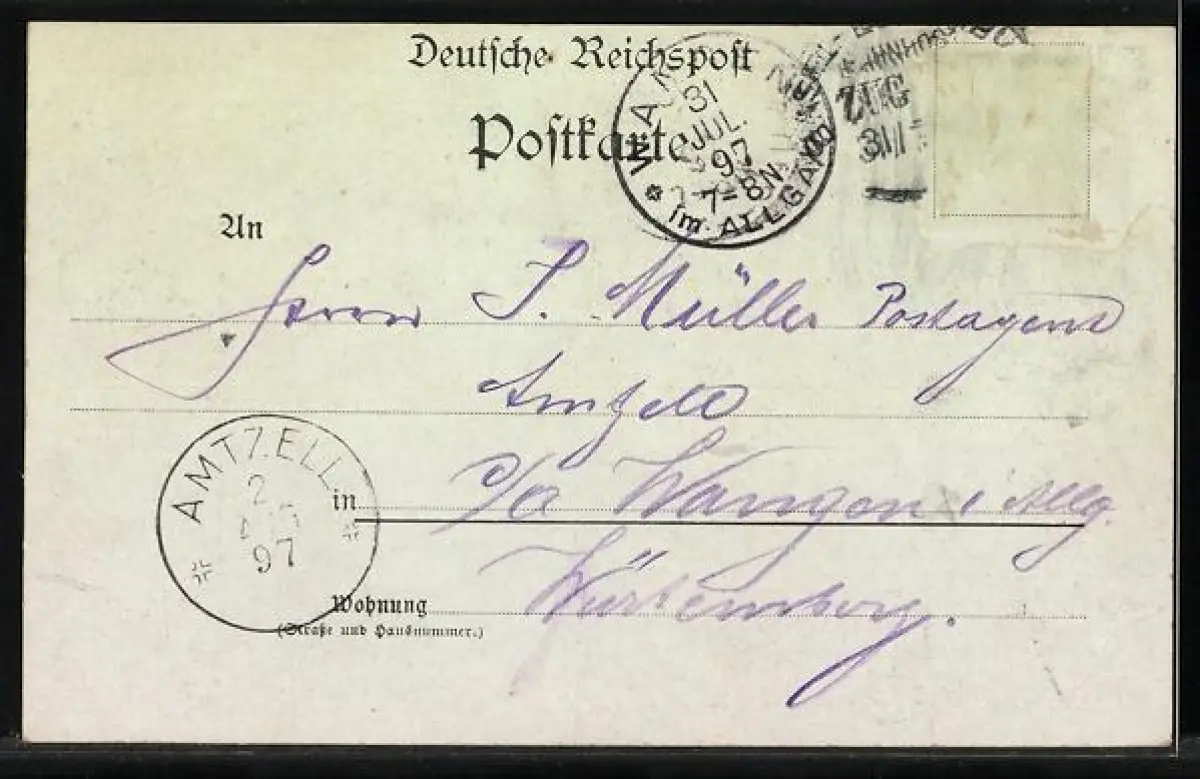 Deutsche Reichspost
Postkarte
WANGEN
31
JUL.
97
7-8N.
im ALLGÄU
ZUG
31/7
An
Herrn J. Müller Postagent
Amtzell
c/o Wangen i Allg.
Würtemberg.
AMTZELL
2
97
in
Wohnung
(Straße und Hausnummer.)